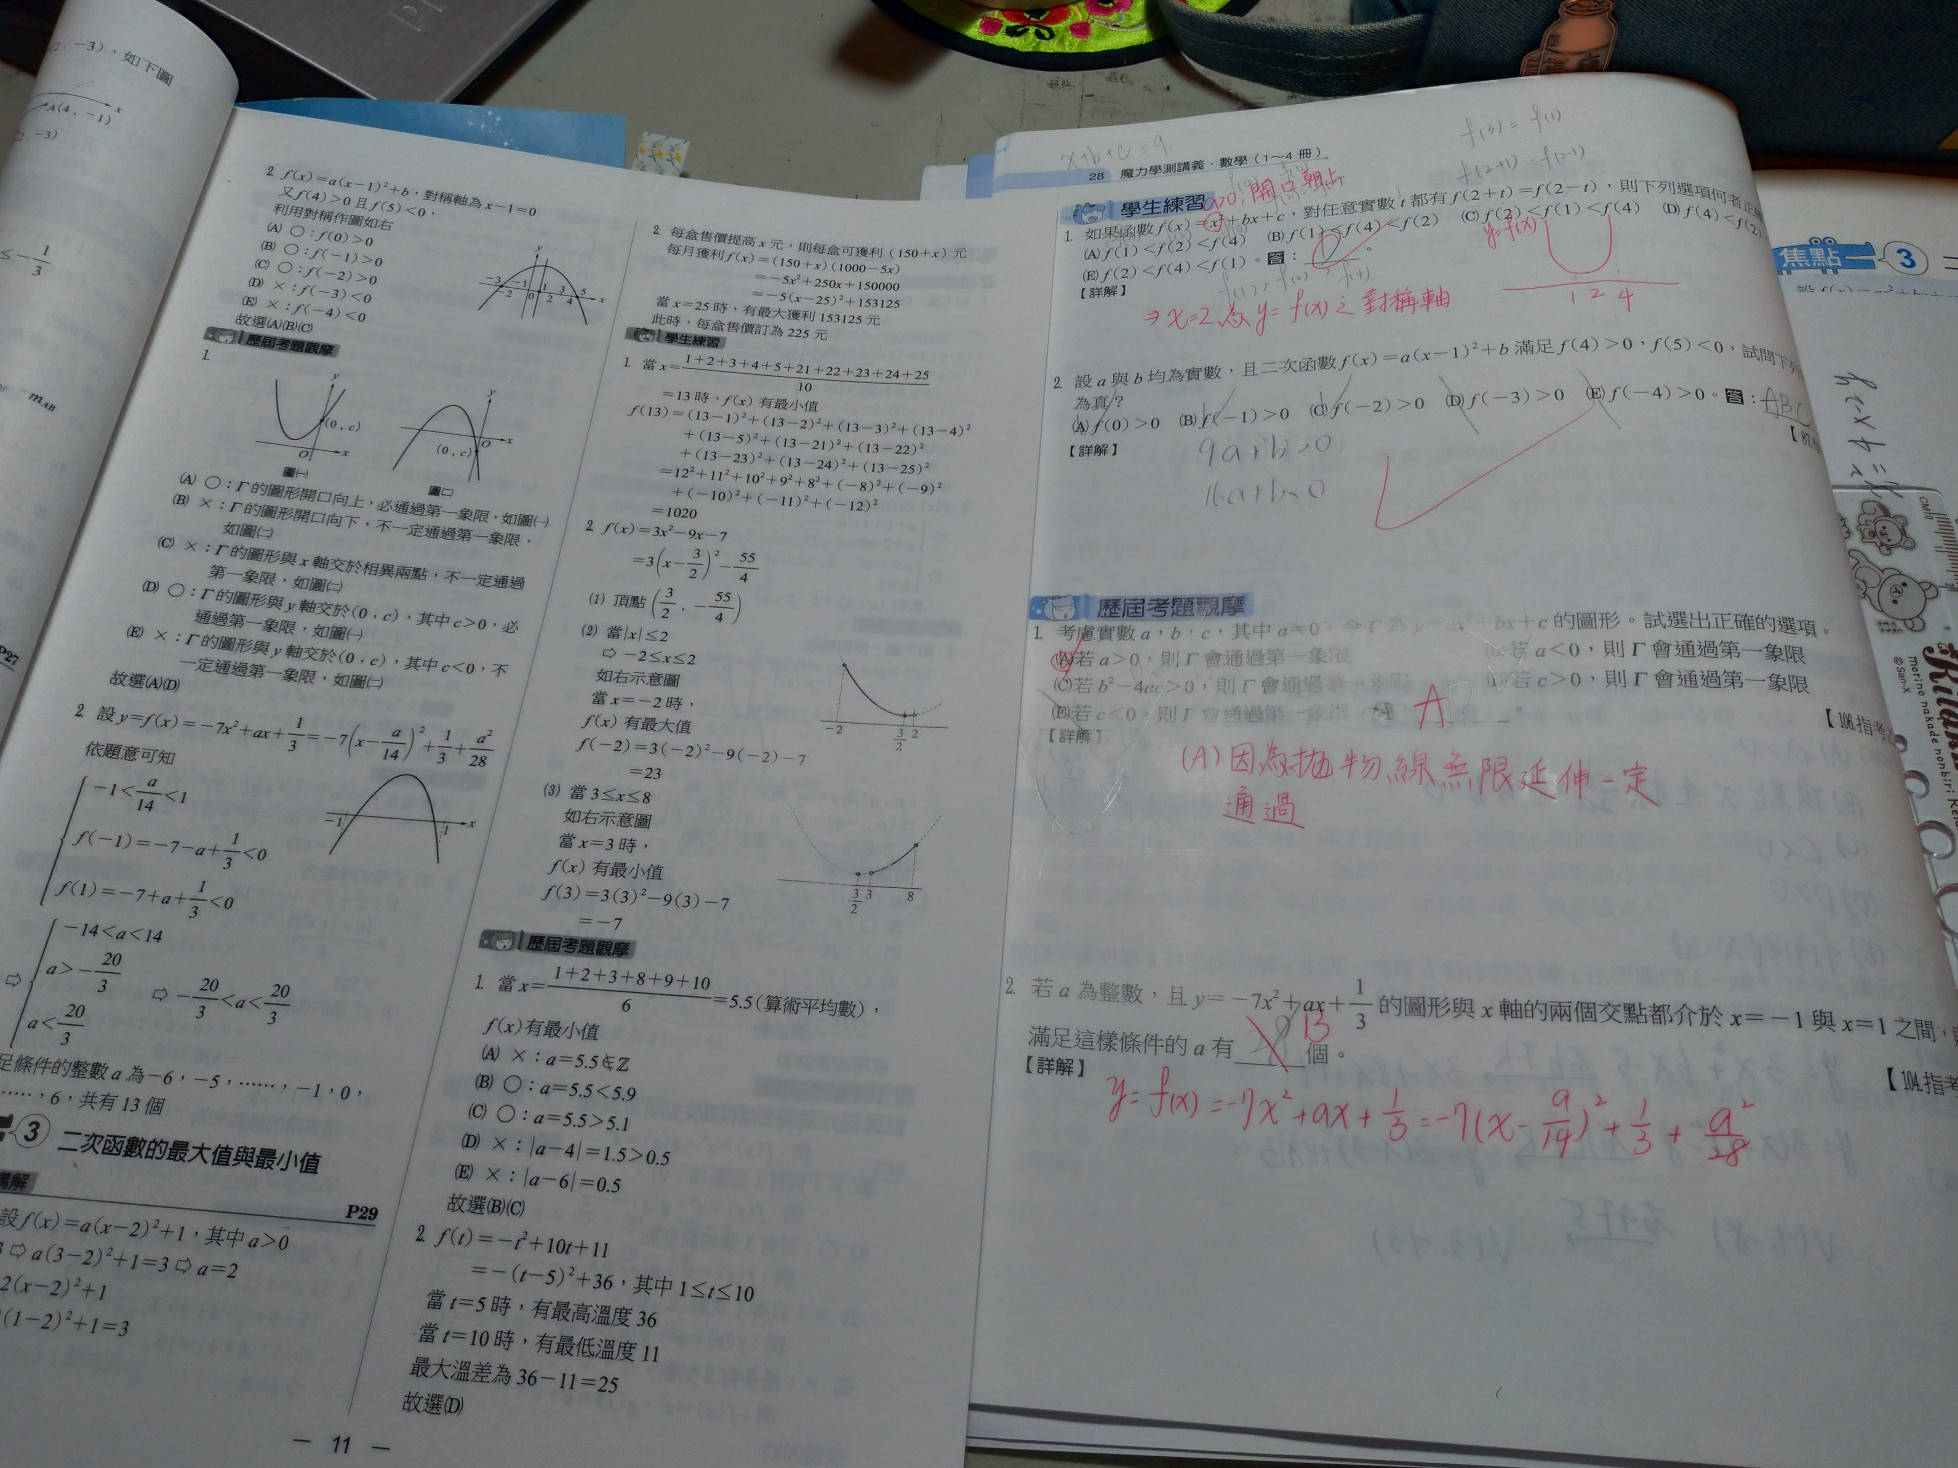 2 f(x)=a(x-1)²+b,對稱軸為x-1=0
又f(4)>0且f(5)<0,
利用對稱作圖如右
(A) ○:f(0)>0
(B) ○:f(-1)>0
(C) ○:f(-2)>0
(D) ×:f(-3)<0
(E) ×:f(-4)<0
故選(A)(B)(C)
歷屆考題觀摩
1.
(0,c)
(0,c)
圖(一)
圖(二)
(A) ○:Γ的圖形開口向上,必通過第一象限,如圖(一)
(B) ×:Γ的圖形開口向下,不一定通過第一象限,
如圖(二)
(C) ×:Γ的圖形與x軸交於相異兩點,不一定通過
第一象限,如圖(二)
(D) ○:Γ的圖形與y軸交於(0,c),其中c>0,必
通過第一象限,如圖(一)
(E) ×:Γ的圖形與y軸交於(0,c),其中c<0,不
一定通過第一象限,如圖(二)
故選(A)(D)
2. 設y=f(x)=-7x²+ax+1/3=-7(x-a/14)²+1/3+a²/28
依題意可知
-1<a/14<1
f(-1)=-7-a+1/3<0
f(1)=-7+a+1/3<0
-14<a<14
a>-20/3 ⇨ -20/3<a<20/3
a<20/3
足條件的整數a為-6,-5,……,-1,0,
……,6,共有13個
3 二次函數的最大值與最小值
P29
設f(x)=a(x-2)²+1,其中a>0
⇨a(3-2)²+1=3⇨a=2
2(x-2)²+1
(1-2)²+1=3
2 每盒售價提高x元,則每盒可獲利(150+x)元
每月獲利f(x)=(150+x)(1000-5x)
=-5x²+250x+150000
=-5(x-25)²+153125
當x=25時,有最大獲利153125元
此時,每盒售價訂為225元
學生練習
1. 當x=(1+2+3+4+5+21+22+23+24+25)/10
=13時,f(x)有最小值
f(13)=(13-1)²+(13-2)²+(13-3)²+(13-4)²
+(13-5)²+(13-21)²+(13-22)²
+(13-23)²+(13-24)²+(13-25)²
=12²+11²+10²+9²+8²+(-8)²+(-9)²
+(-10)²+(-11)²+(-12)²
=1020
2. f(x)=3x²-9x-7
=3(x-3/2)²-55/4
(1) 頂點(3/2,-55/4)
(2) 當|x|≤2
⇨-2≤x≤2
如右示意圖
當x=-2時,
f(x)有最大值
f(-2)=3(-2)²-9(-2)-7
=23
(3) 當3≤x≤8
如右示意圖
當x=3時,
f(x)有最小值
f(3)=3(3)²-9(3)-7
=-7
歷屆考題觀摩
1. 當x=(1+2+3+8+9+10)/6=5.5(算術平均數),
f(x)有最小值
(A) ×:a=5.5∉Z
(B) ○:a=5.5<5.9
(C) ○:a=5.5>5.1
(D) ×:|a-4|=1.5>0.5
(E) ×:|a-6|=0.5
故選(B)(C)
2. f(t)=-t²+10t+11
=-(t-5)²+36,其中1≤t≤10
當t=5時,有最高溫度36
當t=10時,有最低溫度11
最大溫差為36-11=25
故選(D)
- 11 -
f(3)=f(1)
f(2+1)=f(2-1)
28 魔力學測講義·數學(1~4冊)
a>0,開口朝上
學生練習
1. 如果函數f(x)=x²+bx+c,對任意實數t都有f(2+t)=f(2-t),則下列選項何者正確
(A)f(1)<f(2)<f(4) (B)f(1)<f(4)<f(2) (C)f(2)<f(1)<f(4) (D)f(4)<f(2)
(E)f(2)<f(4)<f(1)。答:
【詳解】
y=f(x)
1 2 4
⇒x=2為y=f(x)之對稱軸
2. 設a與b均為實數,且二次函數f(x)=a(x-1)²+b滿足f(4)>0,f(5)<0,試問下列
為真?
(A)f(0)>0 (B)f(-1)>0 (C)f(-2)>0 (D)f(-3)>0 (E)f(-4)>0。答:ABC
【詳解】
9a+b>0
16a+b<0
歷屆考題觀摩
1. 考慮實數a,b,c,其中a≠0,令Γ為y=ax²+bx+c的圖形。試選出正確的選項。
(A)若a>0,則Γ會通過第一象限 (B)若a<0,則Γ會通過第一象限
(C)若b²-4ac>0,則Γ會通過第一象限 (D)若c>0,則Γ會通過第一象限
(E)若c<0,則Γ會通過第一象限 答:A
【106.指考
【詳解】
(A)因為拋物線無限延伸一定
通過
2. 若a為整數,且y=-7x²+ax+1/3的圖形與x軸的兩個交點都介於x=-1與x=1之間,
滿足這樣條件的a有 13 個。
【104.指考
【詳解】
y=f(x)=-7x²+ax+1/3=-7(x-a/14)²+1/3+a²/28
焦點 3